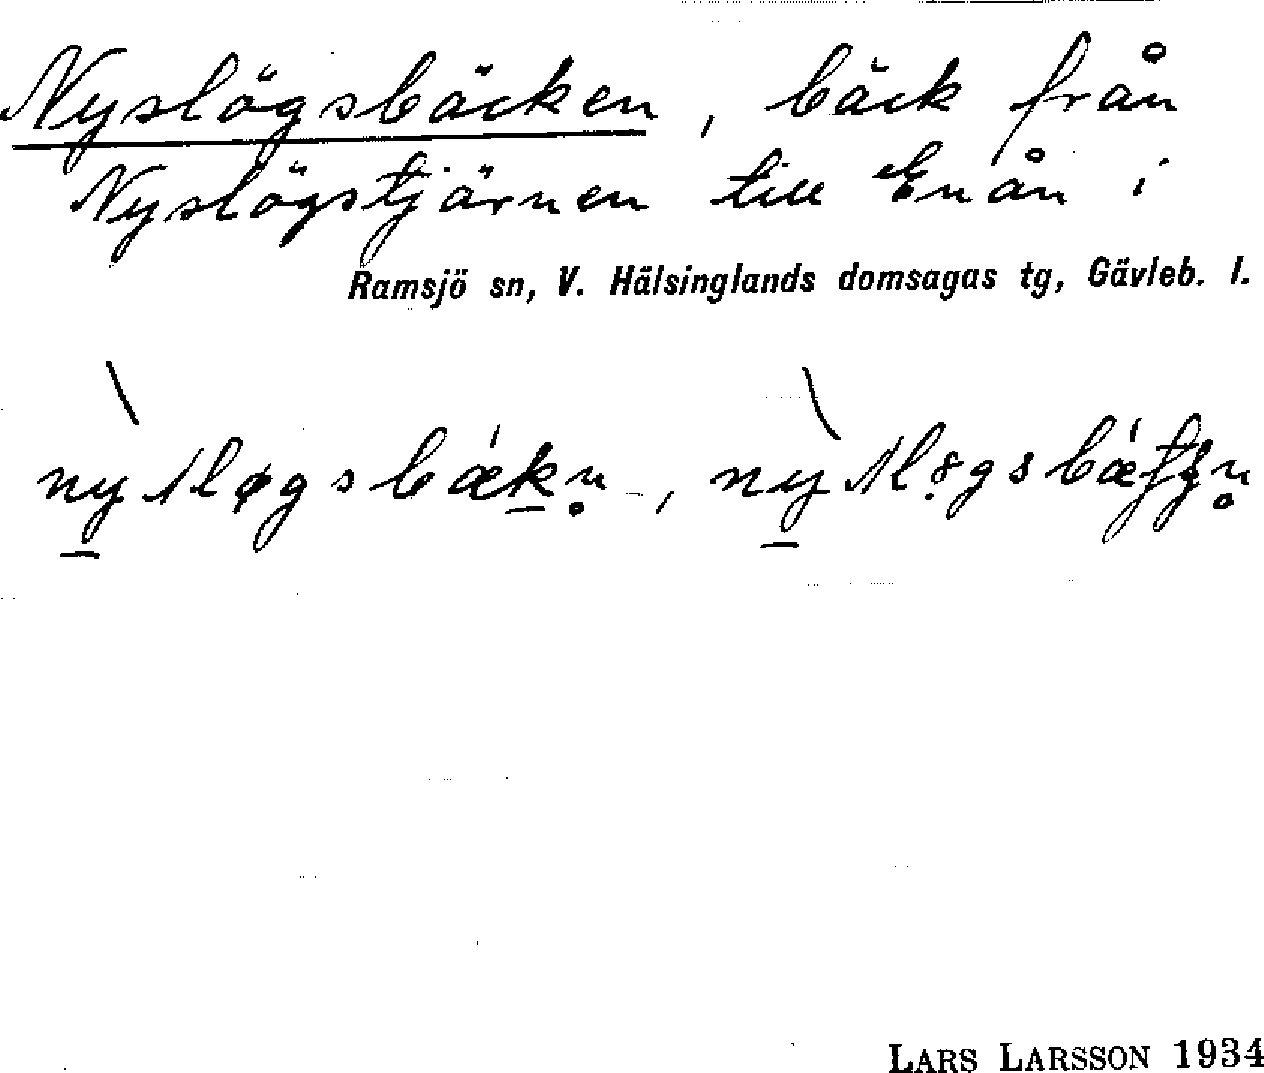 Nyslögsbäcken, bäck från
Nyslögstjärnen till Enån i
Ramsjö sn, V. Hälsinglands domsagas tg, Gävleb. l.
LARS LARSSON 1934